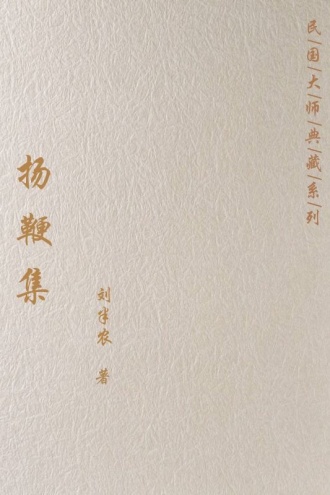 民国大师典藏系列
扬鞭集
刘半农 著